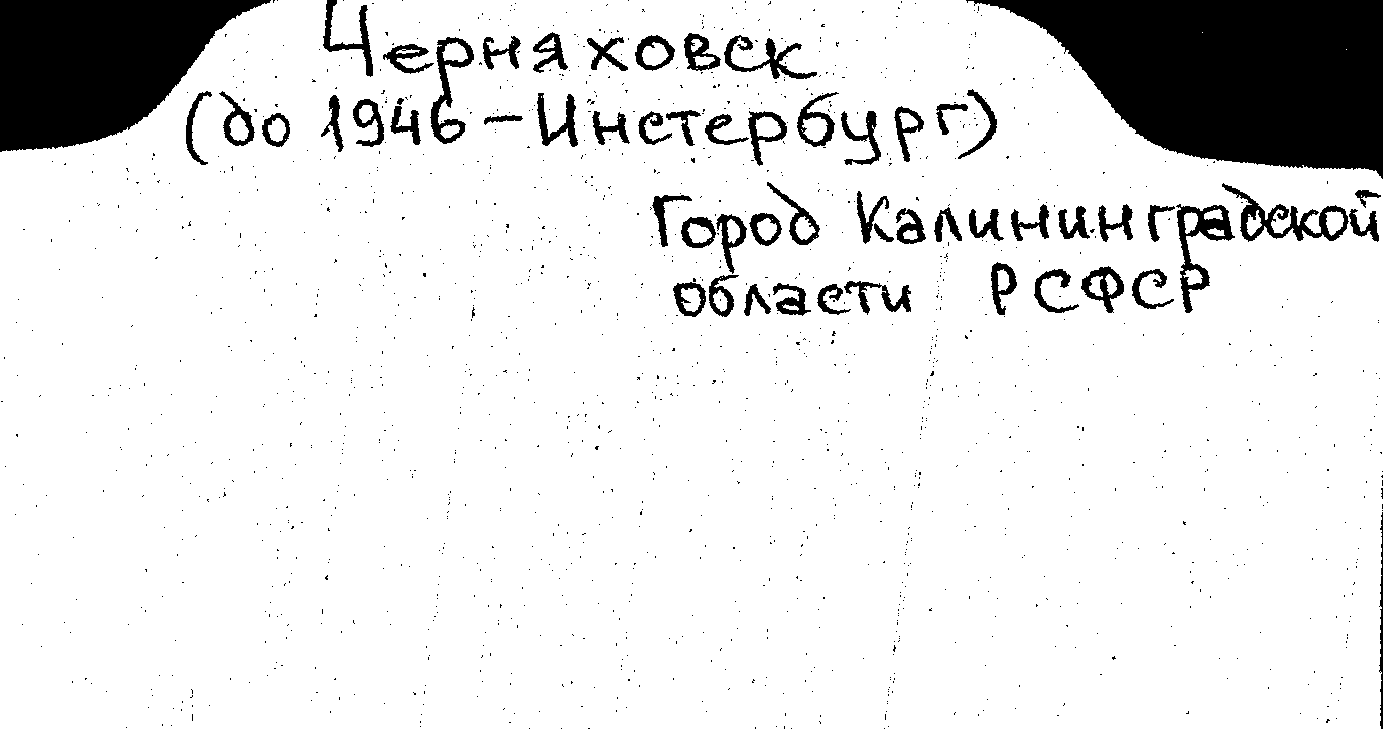 Черняховск
(до 1946 – Инстербург)
Город Калининградской
области РСФСР